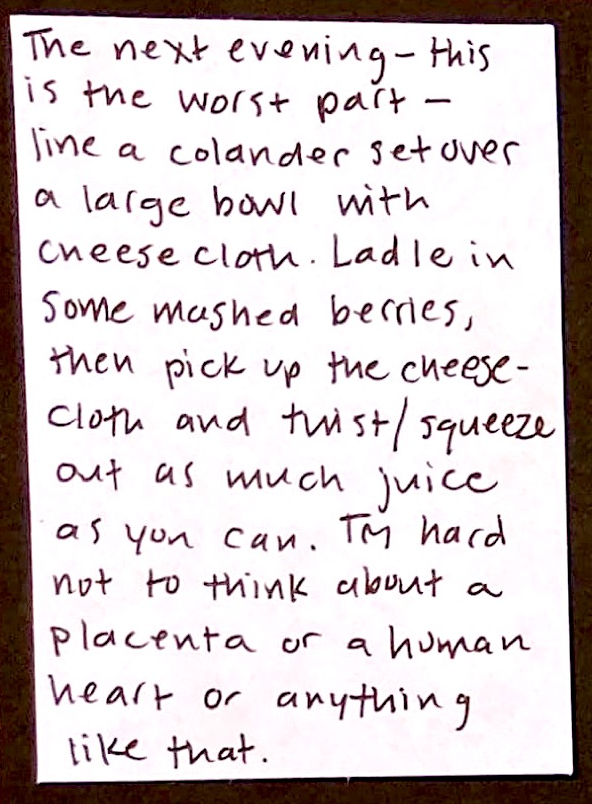 The next evening – this
is the worst part –
line a colander set over
a large bowl with
cheese cloth. Ladle in
some mashed berries,
then pick up the cheese-
cloth and twist/squeeze
out as much juice
as you can. Try hard
not to think about a
placenta or a human
heart or anything
like that.